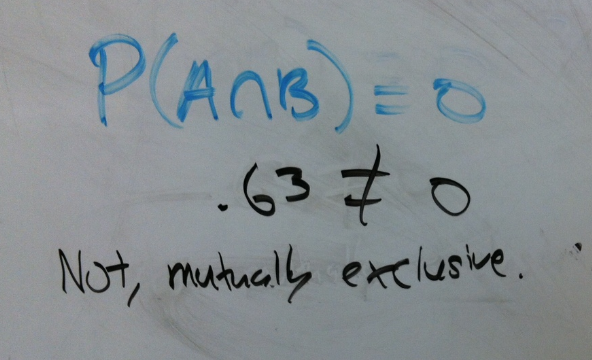 P(A∩B) = 0
.63 ≠ 0
Not, mutually exclusive.